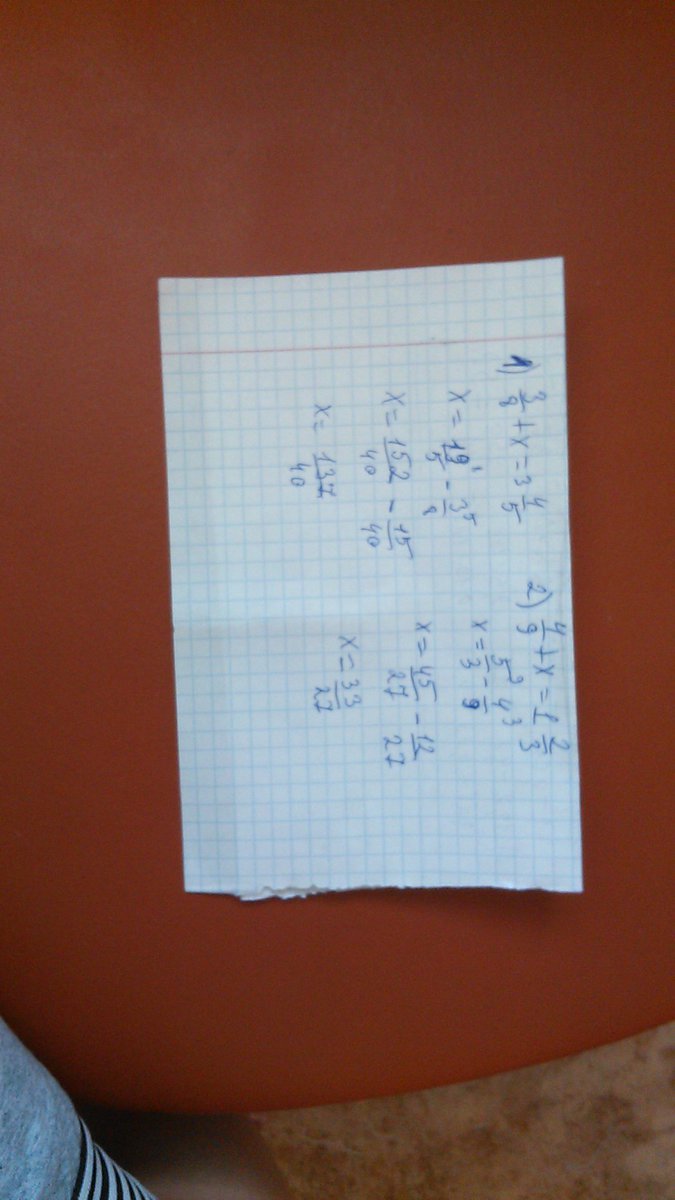 1) 3/8 + x = 3 4/5
x = 19/5 - 3/8
x = 152/40 - 15/40
x = 137/40
2) 4/9 + x = 1 2/3
x = 5/3 - 4/9
x = 45/27 - 12/27
x = 33/27